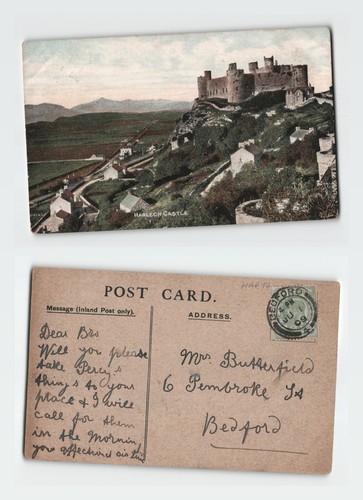 HARLECH CASTLE
POST CARD.
Message (Inland Post only).
ADDRESS.
BEDFORD
Dear Bro
Will you please
take Percy's
things to your
place & I will
call for them
in the Morning
your affectiond sis
Mrs Butterfield
6 Pembroke St
Bedford